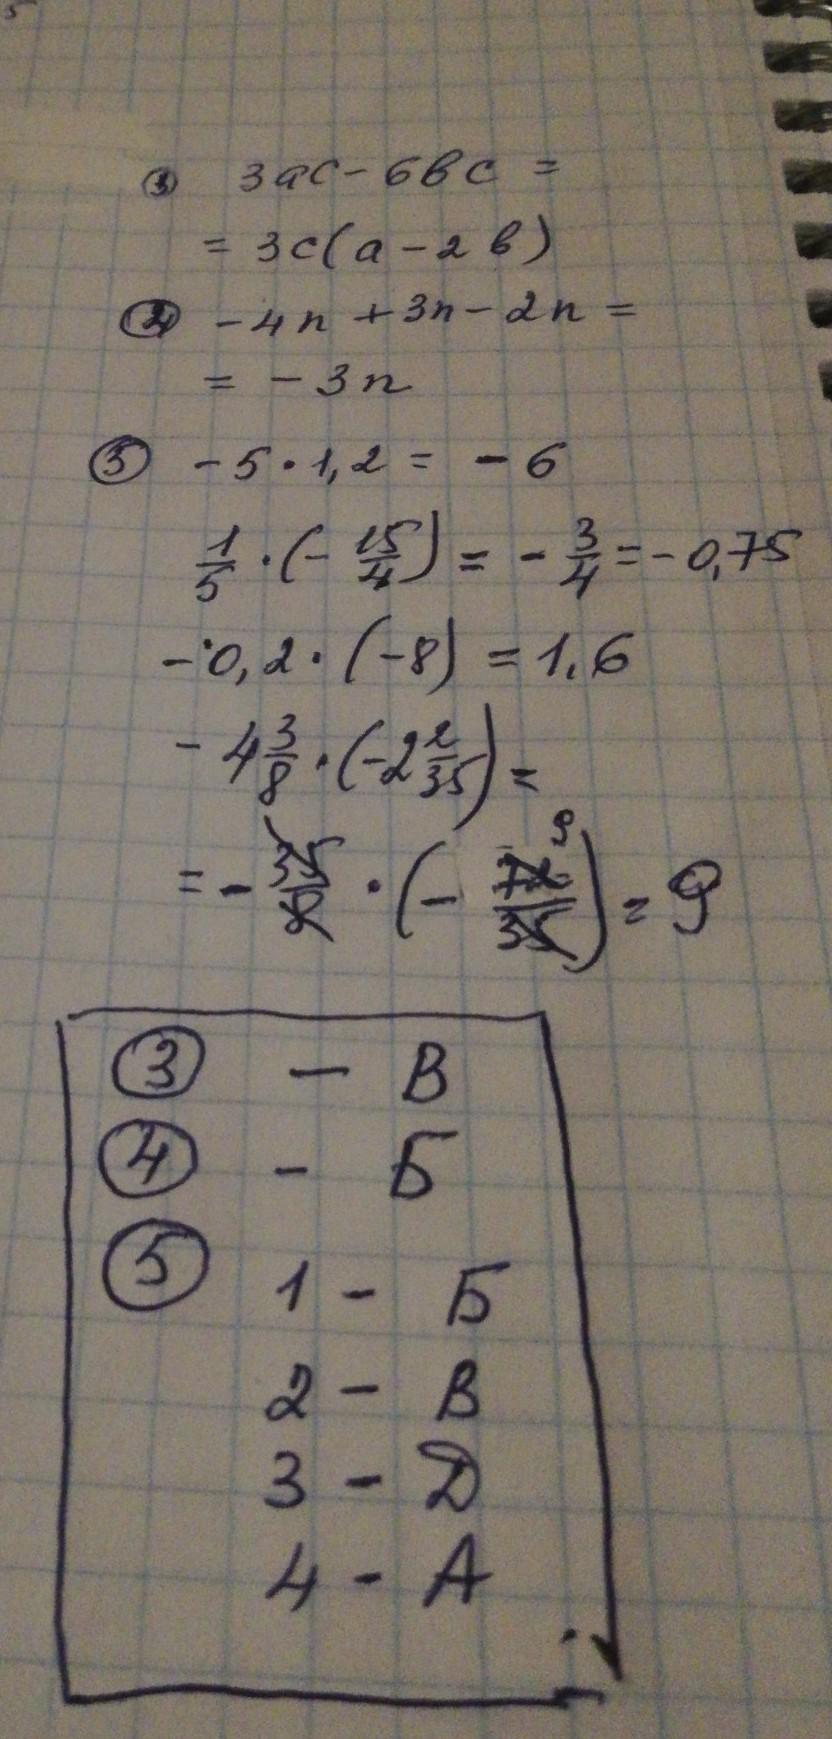 ③ 3ac - 6bc =
= 3c(a - 2b)
④ -4n + 3n - 2n =
= -3n
⑤ -5 · 1,2 = -6
1/5 · (- 15/4) = - 3/4 = -0,75
-0,2 · (-8) = 1,6
-4 3/8 · (-2 2/35) =
= - 35/8 · (- 72/35) = 9
9
③ - В
④ - Б
⑤ 1 - Б
2 - В
3 - Д
4 - А